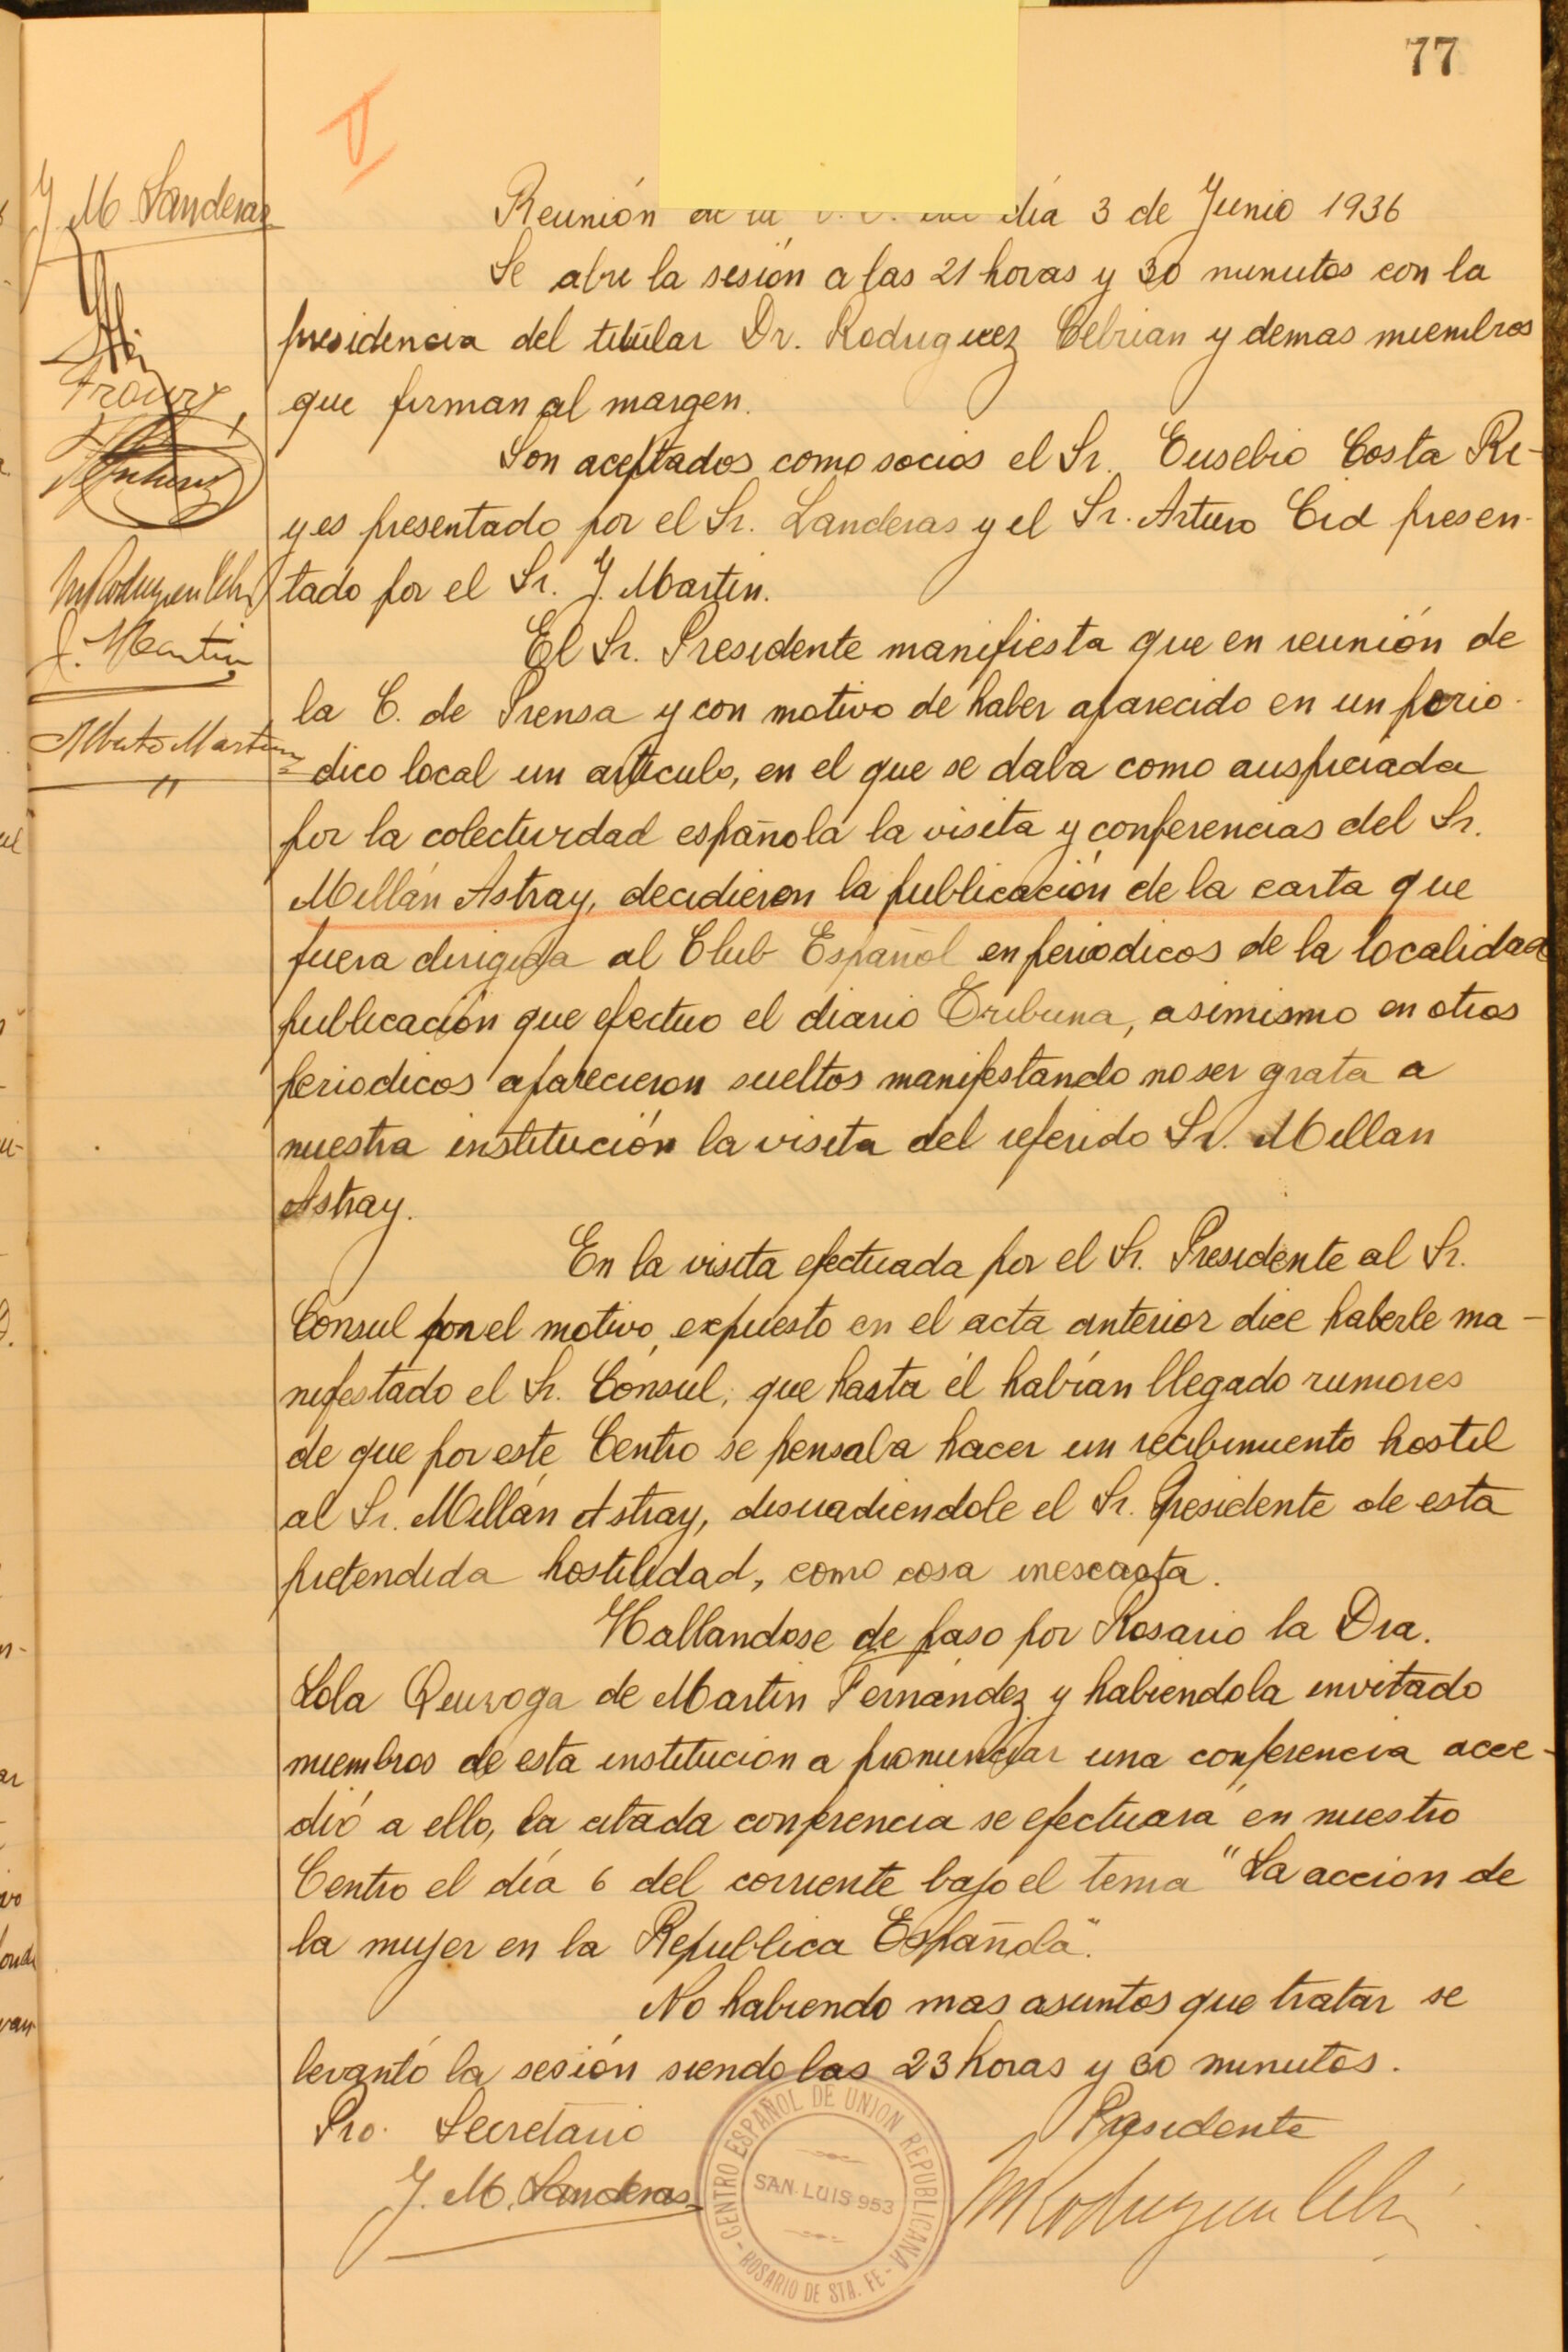 77
V
J. M. Landeras
Reunión de la día 3 de Junio 1936
Se abre la sesión a las 21 horas y 30 minutos con la
presidencia del titular Dr. Rodriguez Cebrian y demas miembros
que firman al margen.
Son aceptados como socios el Sr. Eusebio Costa Re-
yes presentado por el Sr. Landeras y el Sr. Arturo Cid presen-
tado por el Sr. J. Martin.
J. Martin
Alberto Martinez
El Sr. Presidente manifiesta que en reunión de
la C. de Prensa y con motivo de haber aparecido en un perio-
dico local un articulo, en el que se daba como auspiciada
por la colectividad española la visita y conferencias del Sr.
Millán Astray, decidieron la publicación de la carta que
fuera dirigida al Club Español en periodicos de la localidad
publicación que efectuo el diario Tribuna, asimismo en otros
periodicos aparecieron sueltos manifestando no ser grata a
nuestra institución la visita del referido Sr. Millan
Astray.
En la visita efectuada por el Sr. Presidente al Sr.
Consul por el motivo expuesto en el acta anterior dice haberle ma-
nifestado el Sr. Cónsul, que hasta él habían llegado rumores
de que por este Centro se pensaba hacer un recibimiento hostil
al Sr. Millán Astray, disuadiendole el Sr. Presidente de esta
pretendida hostilidad, como cosa inexacta.
Hallandose de paso por Rosario la Dra.
Lola Quiroga de Martin Fernández y habiendola invitado
miembros de esta institución a pronunciar una conferencia acce-
dió a ello, la citada conferencia se efectuará en nuestro
Centro el día 6 del corriente bajo el tema "La acción de
la mujer en la Republica Española".
No habiendo mas asuntos que tratar se
levantó la sesión siendo las 23 horas y 30 minutos.
Pro. Secretario Presidente
J. M. Landeras
CENTRO ESPAÑOL DE UNION REPUBLICANA
SAN LUIS 953
ROSARIO DE STA. FE